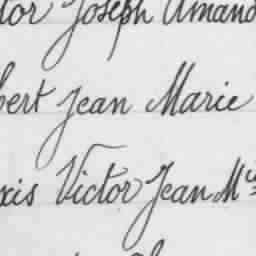 tor Joseph Amand
bert Jean Marie
exis Victor Jean M